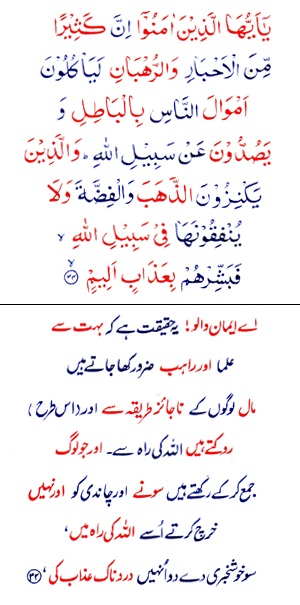 يٰٓاَيُّهَا الَّذِيْنَ اٰمَنُوْٓا اِنَّ كَثِيْرًا
مِّنَ الْاَحْبَارِ وَالرُّهْبَانِ لَيَاْكُلُوْنَ
اَمْوَالَ النَّاسِ بِالْبَاطِلِ وَ
يَصُدُّوْنَ عَنْ سَبِيْلِ اللّٰهِ ؕ وَالَّذِيْنَ
يَكْنِزُوْنَ الذَّهَبَ وَالْفِضَّةَ وَلَا
يُنْفِقُوْنَهَا فِيْ سَبِيْلِ اللّٰهِ ۙ
فَبَشِّرْهُمْ بِعَذَابٍ اَلِيْمٍ ۙ ﴿۳۴﴾
اے ایمان والو! یہ حقیقت ہے کہ بہت سے
علما اور راہب ضرور کھا جاتے ہیں
مال لوگوں کے ناجائز طریقہ سے اور (اس طرح)
روکتے ہیں اللہ کی راہ سے۔ اور جو لوگ
جمع کر کے رکھتے ہیں سونے اور چاندی کو اور نہیں
خرچ کرتے اُسے اللہ کی راہ میں،
سو خوشخبری دے دو اُنہیں دردناک عذاب کی، ﴿۳۴﴾